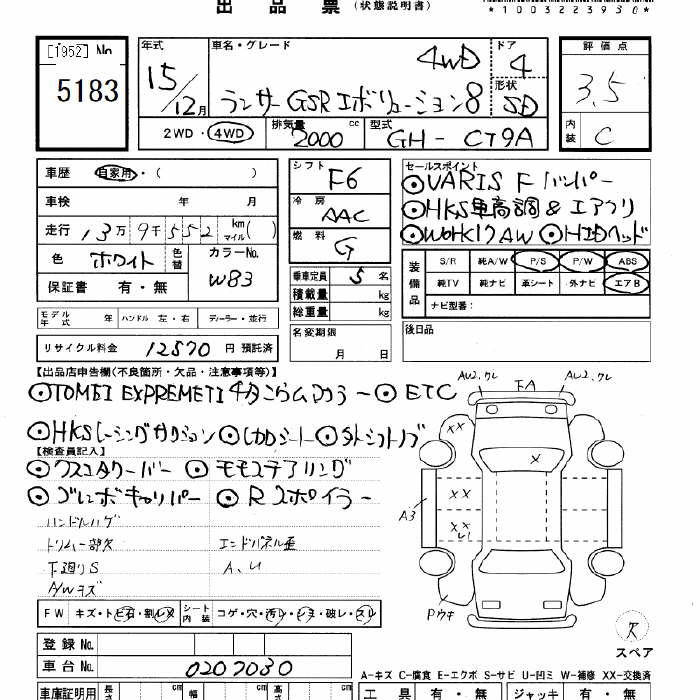 出品票(状態説明書)
*1003223930*
[1952] No
5183
年式
15/12月
車名・グレード
4WD
ランサー GSR エボリューション8
ドア
4
形状
SD
評価点
3.5
内装
C
2WD・4WD
排気量
2000 cc
型式
GH-CT9A
車歴 自家用・( )
車検 年 月
走行 13万9千552 km マイル( )
色 ホワイト 色替
カラーNo.
W83
保証書 有・無
シフト
F6
冷房
AAC
燃料
G
セールスポイント
◎VARIS F バンパー
◎HKS車高調 & エアクリ
◎WORK17AW ◎HIDヘッド
装備品
S/R 純A/W P/S P/W ABS
純TV 純ナビ 革シート 外ナビ エアB
ナビ型番:
乗車定員 5 名
積載量 kg
総重量 kg
モデル年式 年 ハンドル 左・右 ディーラー・並行
名変期限
月 日
後日品
リサイクル料金 12570 円 預託済
【出品店申告欄(不良箇所・欠品・注意事項等)】
◎TOMEI EXPREME ◎ETC
◎HKSレーシングサクション ◎レカロシート ◎シフトノブ
【検査員記入】
◎クスコタワーバー ◎モモステアリング
◎ブレンボキャリパー ◎Rスポイラー
ハンドルハゲ
トリム一部欠
エンドパネル歪
下廻りS
A、U
A/Wキズ
FW キズ・トビ石・割レ・ヌ
シート内装 コゲ・穴・汚レ・シミ・破レ・スレ
登録No.
車台No. 0207030
車庫証明用 長さ cm 幅 cm 高さ cm
AU2、ワレ
FA
AU2、ワレ
××
×
A3
××
××
Pウキ
R
スペア
A-キズ C-腐食 E-エクボ S-サビ U-凹ミ W-補修 XX-交換済
工具 有・無 ジャッキ 有・無